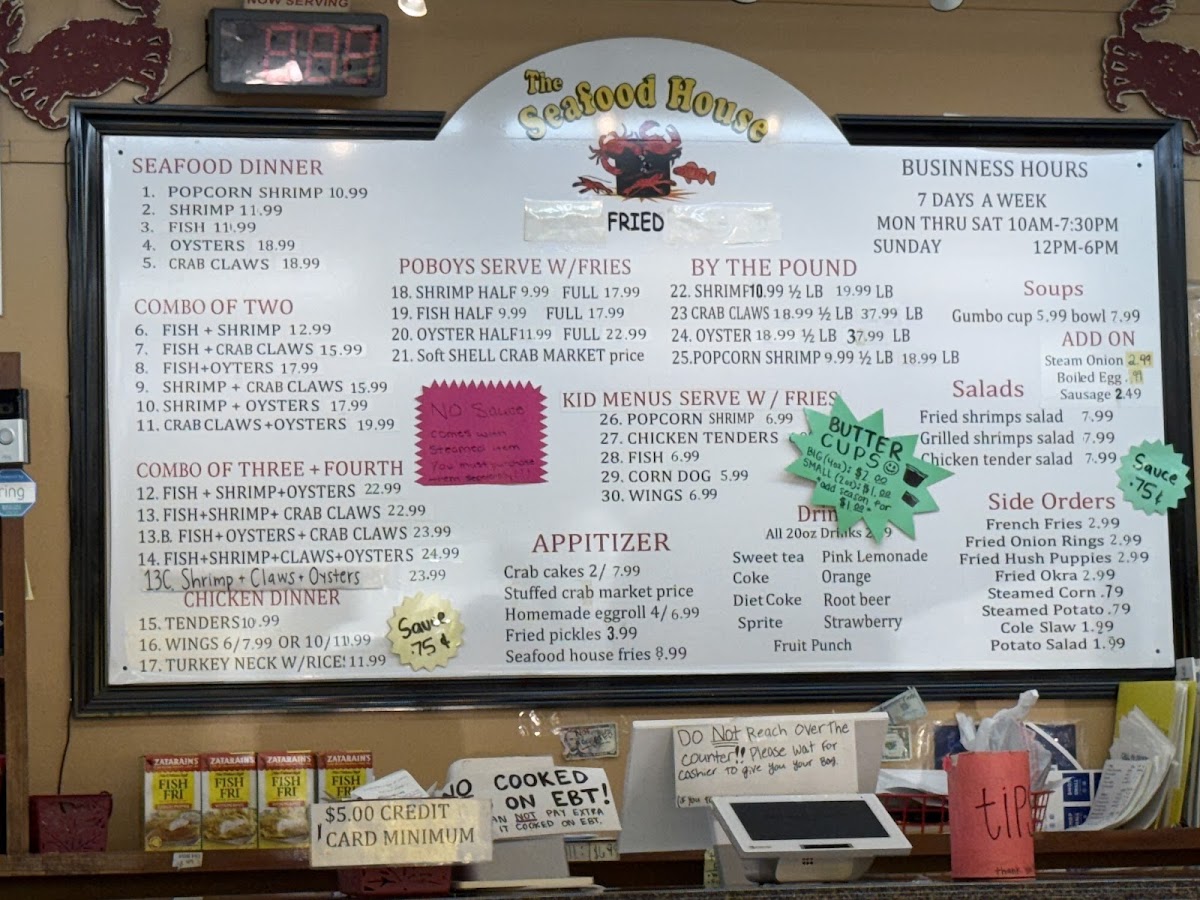 NOW SERVING
The
Seafood House
FRIED
SEAFOOD DINNER
1. POPCORN SHRIMP 10.99
2. SHRIMP 11.99
3. FISH 11.99
4. OYSTERS 18.99
5. CRAB CLAWS 18.99
COMBO OF TWO
6. FISH + SHRIMP 12.99
7. FISH + CRAB CLAWS 15.99
8. FISH+OYTERS 17.99
9. SHRIMP + CRAB CLAWS 15.99
10. SHRIMP + OYSTERS 17.99
11. CRAB CLAWS +OYSTERS 19.99
COMBO OF THREE + FOURTH
12. FISH + SHRIMP+OYSTERS 22.99
13. FISH+SHRIMP+ CRAB CLAWS 22.99
13.B. FISH+OYSTERS + CRAB CLAWS 23.99
14. FISH+SHRIMP+CLAWS+OYSTERS 24.99
13C. Shrimp + Claws + Oysters 23.99
CHICKEN DINNER
15. TENDERS 10.99
16. WINGS 6/7.99 OR 10/11.99
17. TURKEY NECK W/RICE! 11.99
Sauce
.75¢
POBOYS SERVE W/FRIES
18. SHRIMP HALF 9.99 FULL 17.99
19. FISH HALF 9.99 FULL 17.99
20. OYSTER HALF 11.99 FULL 22.99
21. Soft SHELL CRAB MARKET price
NO Sauce
comes with
Steamed item
You must purchase
BY THE POUND
22. SHRIMF10.99 ½ LB 19.99 LB
23 CRAB CLAWS 18.99 ½ LB 37.99 LB
24. OYSTER 18.99 ½ LB 37.99 LB
25.POPCORN SHRIMP 9.99 ½ LB 18.99 LB
KID MENUS SERVE W / FRIES
26. POPCORN SHRIMP 6.99
27. CHICKEN TENDERS
28. FISH 6.99
29. CORN DOG 5.99
30. WINGS 6.99
BUTTER
CUPS
BIG(4oz): $2.00
SMALL (2oz): $1.00
*add season for
$1.00*
APPITIZER
Crab cakes 2/ 7.99
Stuffed crab market price
Homemade eggroll 4/ 6.99
Fried pickles 3.99
Seafood house fries 8.99
Drin
All 20oz Drinks 2 9
Sweet tea Pink Lemonade
Coke Orange
Diet Coke Root beer
Sprite Strawberry
Fruit Punch
BUSINNESS HOURS
7 DAYS A WEEK
MON THRU SAT 10AM-7:30PM
SUNDAY 12PM-6PM
Soups
Gumbo cup 5.99 bowl 7.99
ADD ON
Steam Onion 2.99
Boiled Egg .99
Sausage 2.49
Salads
Fried shrimps salad 7.99
Grilled shrimps salad 7.99
Chicken tender salad 7.99
Sauce
.75¢
Side Orders
French Fries 2.99
Fried Onion Rings 2.99
Fried Hush Puppies 2.99
Fried Okra 2.99
Steamed Corn .79
Steamed Potato .79
Cole Slaw 1.99
Potato Salad 1.99
ring
ZATARAIN'S ZATARAIN'S ZATARAIN'S ZATARAIN'S
FISH FRI FISH FRI FISH FRI FISH FRI
$5.00 CREDIT
CARD MINIMUM
NO COOKED
ON EBT!
AN NOT PAY EXTRA
IT COOKED ON EBT.
DO Not Reach Over The
counter!! Please wait for
cashier to give you your Bag.
tips